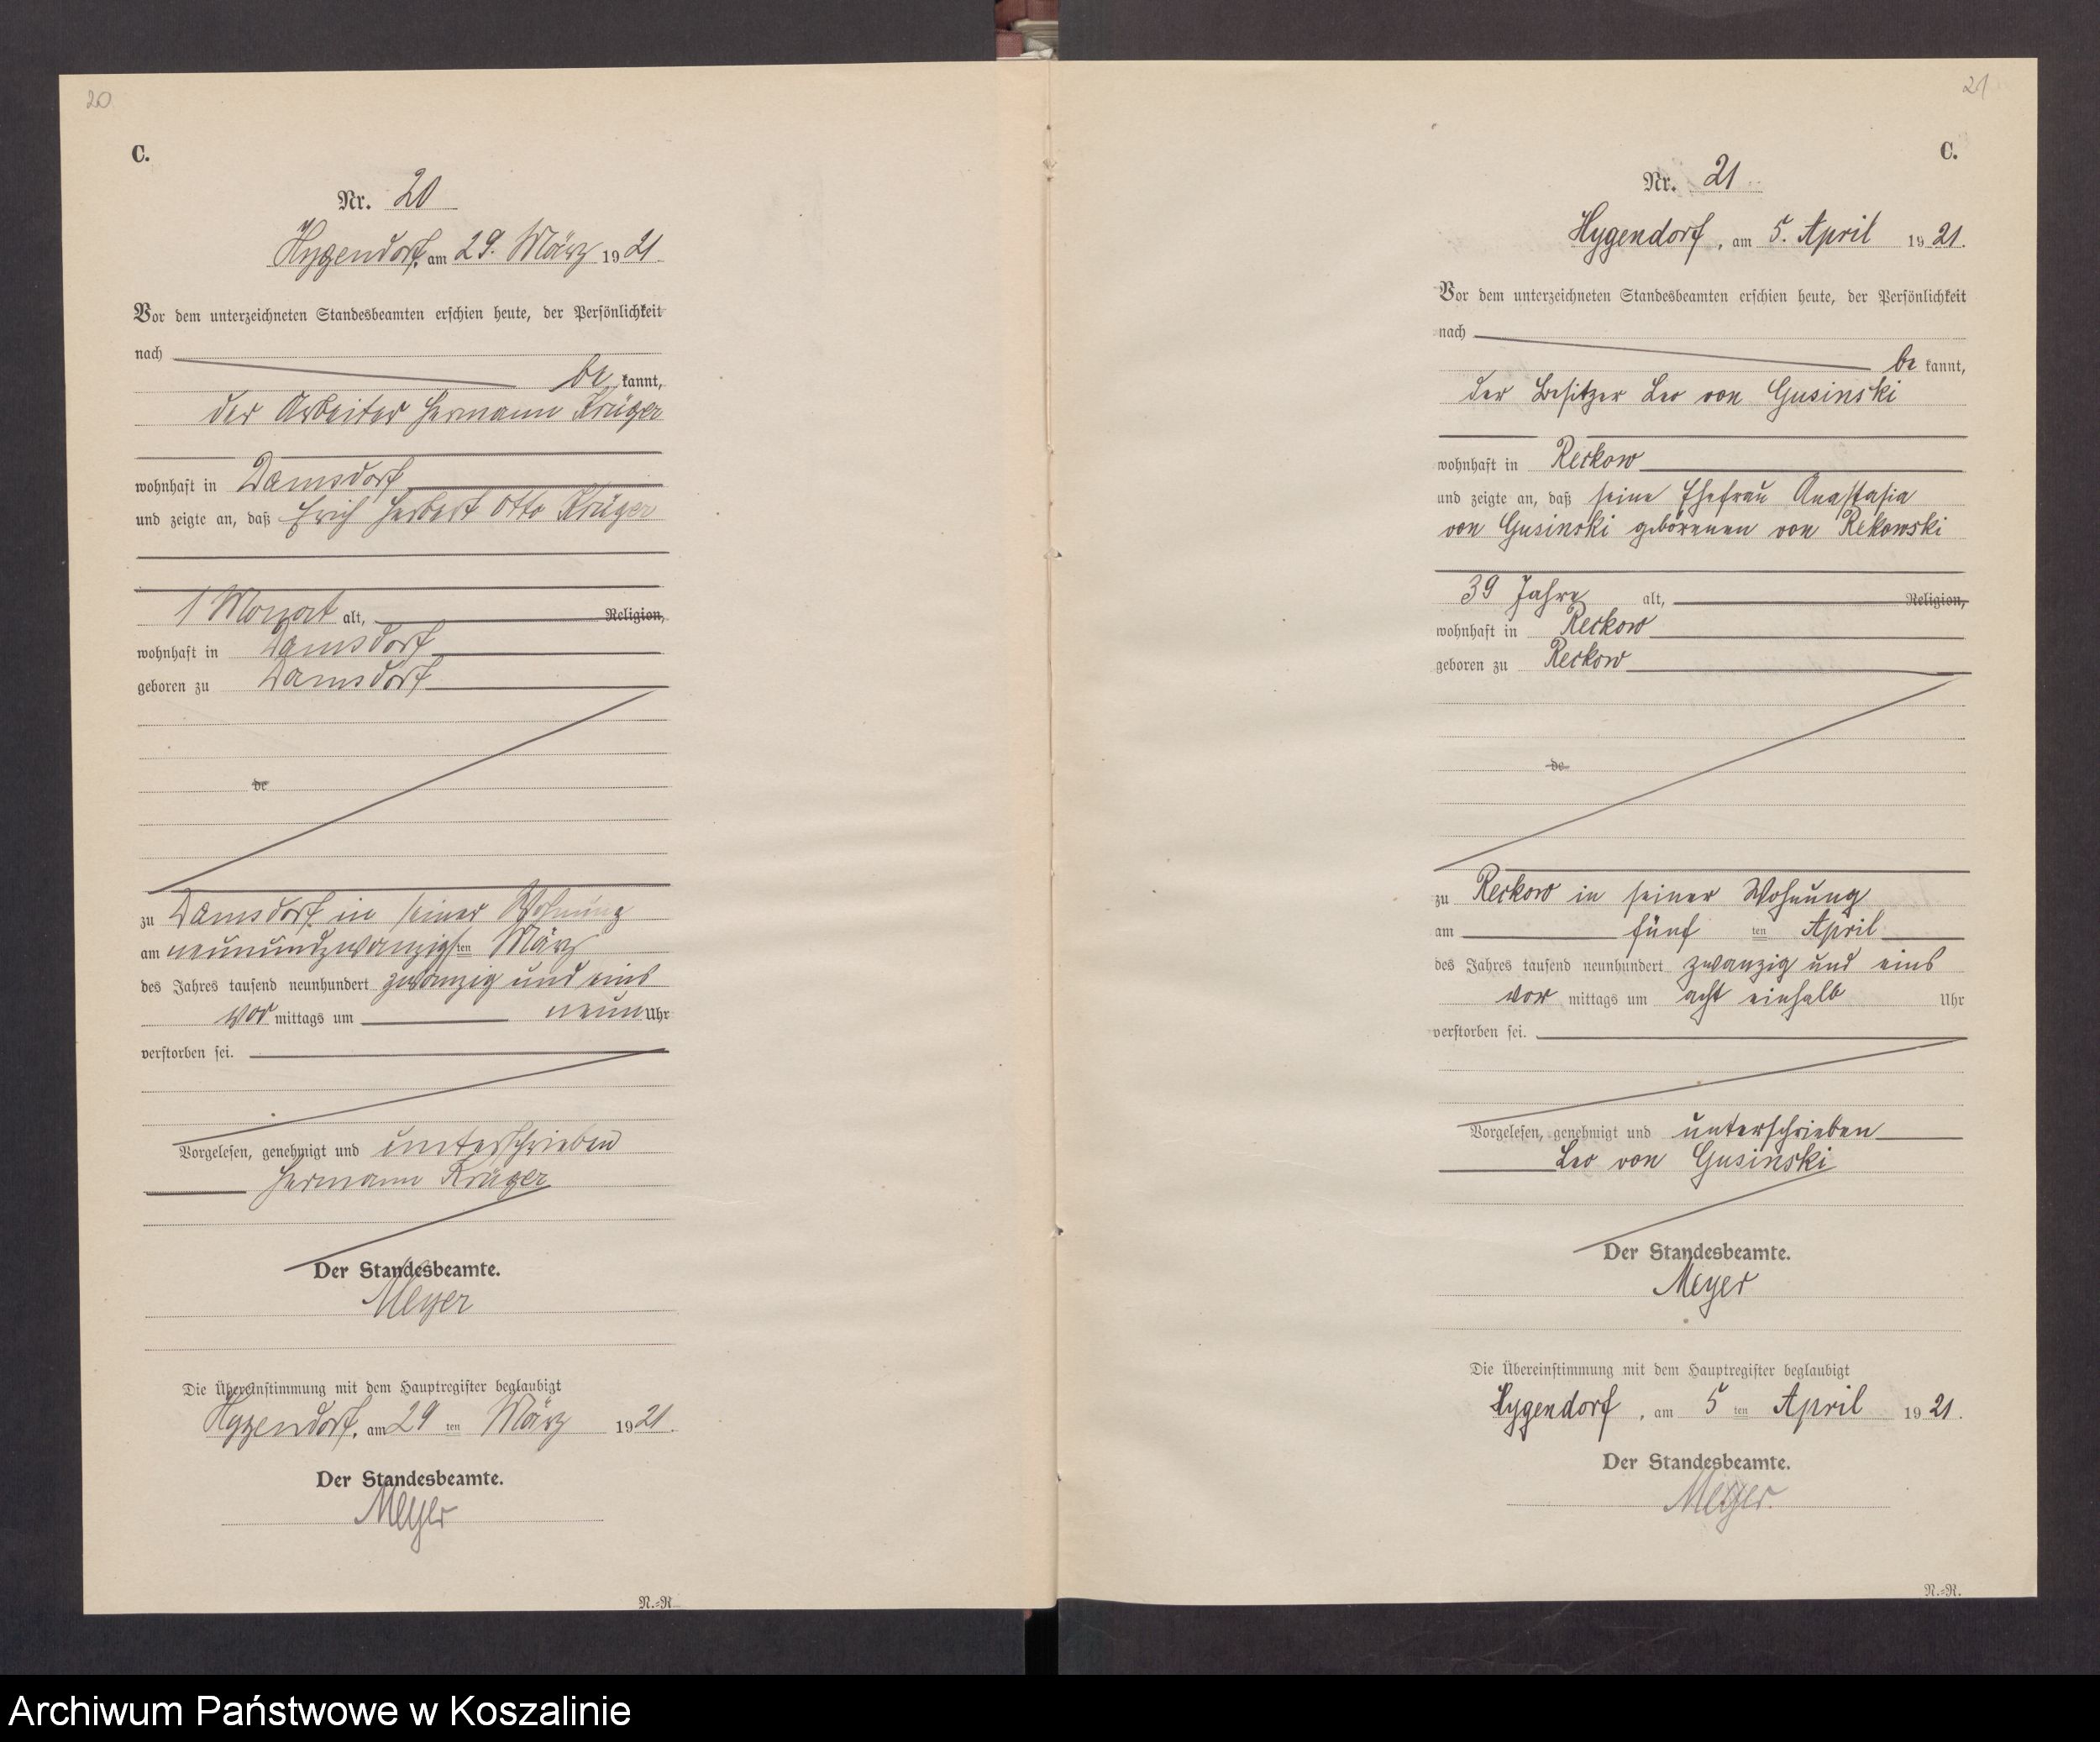 20
C.
Nr. 20
Hygendorf, am 29. März 1921.
Vor dem unterzeichneten Standesbeamten erschien heute, der Persönlichkeit
nach
be kannt,
der Arbeiter Hermann Krüger
wohnhaft in Damsdorf
und zeigte an, daß Erich Herbert Otto Krüger
1 Monat alt, Religion,
wohnhaft in Damsdorf
geboren zu Damsdorf
de
zu Damsdorf in seiner Wohnung
am neunundzwanzigsten März
des Jahres tausend neunhundert zwanzig und eins
vor mittags um neun Uhr
verstorben sei.
Vorgelesen, genehmigt und unterschrieben
Hermann Krüger
Der Standesbeamte.
Meyer
Die Übereinstimmung mit dem Hauptregister beglaubigt
Hygendorf, am 29 ten März 1921.
Der Standesbeamte.
Meyer
N.=R.
21
C.
Nr. 21
Hygendorf, am 5. April 1921.
Vor dem unterzeichneten Standesbeamten erschien heute, der Persönlichkeit
nach
be kannt,
der Besitzer Leo von Gusinski
wohnhaft in Reckow
und zeigte an, daß seine Ehefrau Anastasia
von Gusinski geborenen von Rekowski
39 Jahre alt, Religion,
wohnhaft in Reckow
geboren zu Reckow
de
zu Reckow in seiner Wohnung
am fünf ten April
des Jahres tausend neunhundert zwanzig und eins
vor mittags um acht einhalb Uhr
verstorben sei.
Vorgelesen, genehmigt und unterschrieben
Leo von Gusinski
Der Standesbeamte.
Meyer
Die Übereinstimmung mit dem Hauptregister beglaubigt
Hygendorf, am 5 ten April 1921.
Der Standesbeamte.
Meyer.
N.=R.
Archiwum Państwowe w Koszalinie